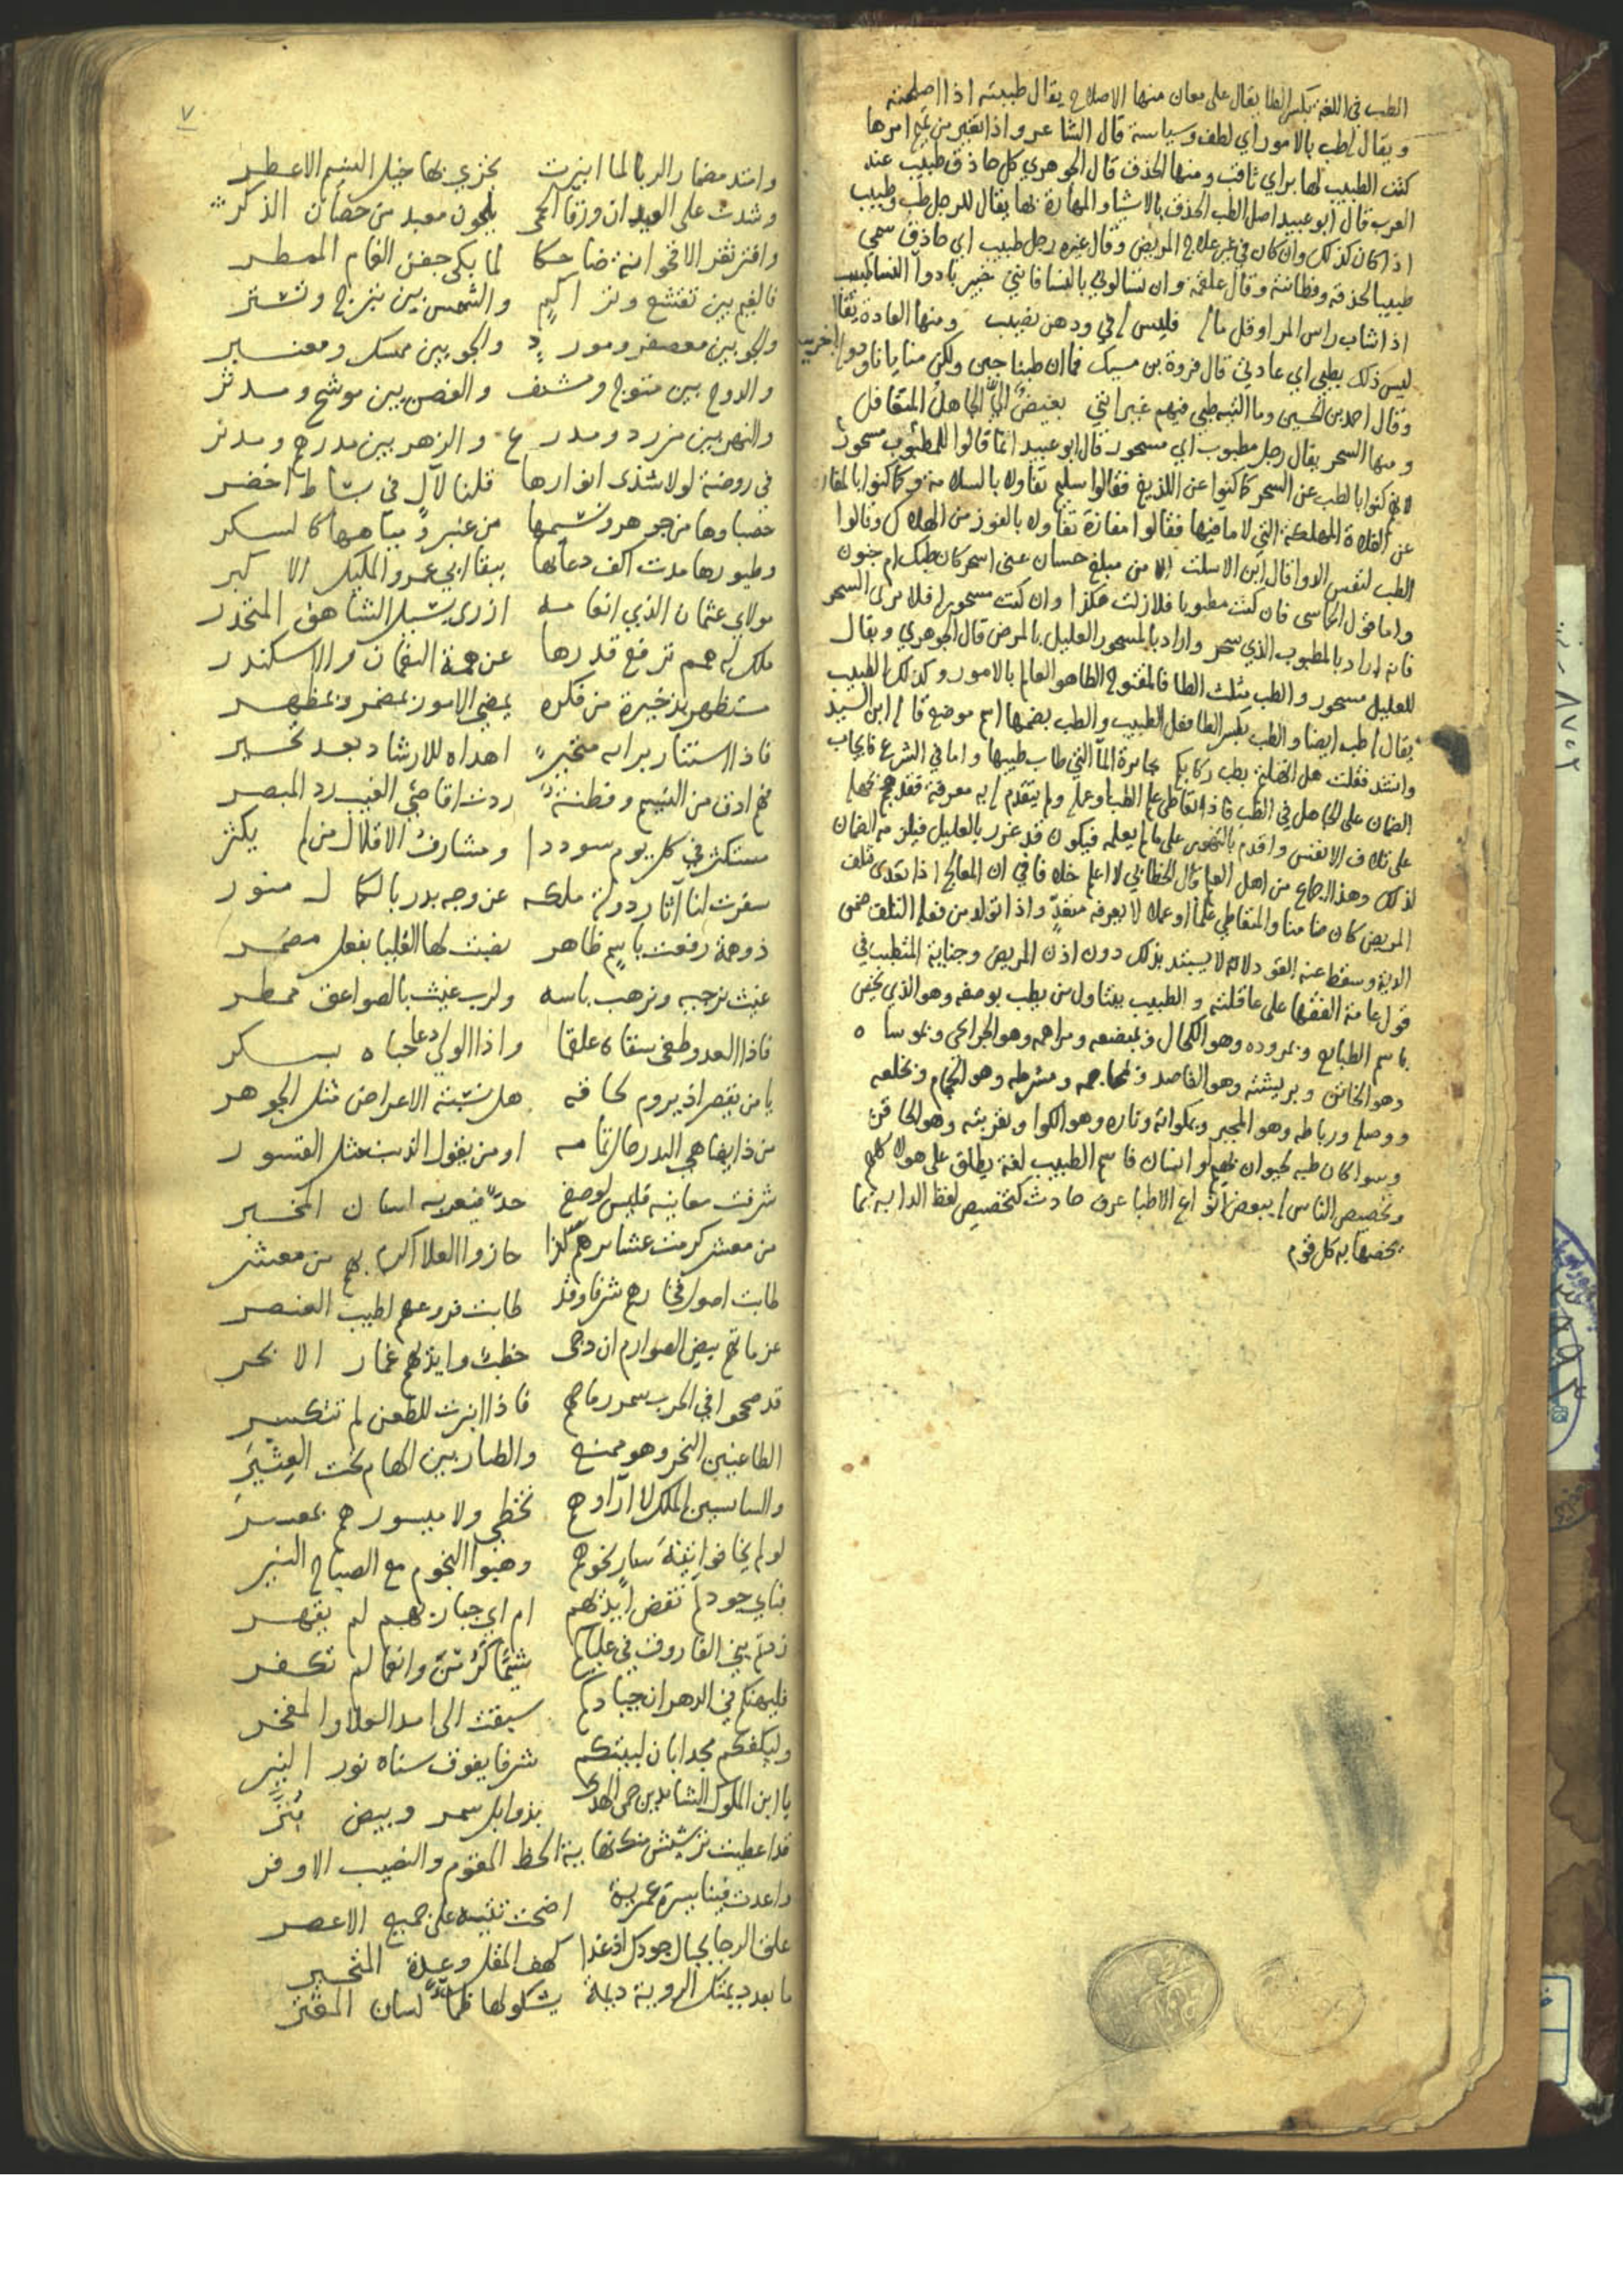 الطب في اللغة بكسر الطا يقال على معان منها الاصلاح يقال طببته اذا اصلحته
ويقال له طب بالامور اي لطف وسياسة قال الشاعر واذا تغير من تميم امرها
كنت الطبيب لها براي ثاقب ومنها الحذق قال الجوهري كل حاذق طبيب عند
العرب قال ابو عبيد اصل الطب الحذق بالاشيا والمهارة بها يقال للرجل طب وطبيب
اذا كان كذلك وان كان في غير علاج المريض وقال غيره رجل طبيب اي حاذق سمي
طبيبا لحذقه وفطانته وقال علقمة وان تسالوني بالنسا فانني خبير بادوا النسا طبيب
اذا شاب راس المر او قل ماله فليس له في ودهن نصيب ومنها العادة يقال
ليس ذلك بطبي اي عادتي قال فروة بن مسيك فما ان طبنا جبن ولكن منايانا ودولة اخرينا
وقال احمد بن الحسين وما التيه طبي فيهم غير انني بغيض الي الجاهل المتغافل
ومنها السحر يقال رجل مطبوب اي مسحور قال ابو عبيد انما قالوا للمطبوب مسحور
لانهم كنوا بالطب عن السحر كما كنوا عن اللذيغ فقالوا سليم تفاولا بالسلامة وكما كنوا بالمفازة
عن الفلاة المهلكة التي لا ما فيها فقالوا مفازة تفاولا بالفوز من الهلاك وقالوا
الطب لنفس الدوا قال ابن الاسلت الا من مبلغ حسان عني اسحر كان طبك ام جنون
واما قول الحماسي فان كنت مطبوبا فلا زلت هكذا وان كنت مسحورا فلا برى السحر
فانه اراد بالمطبوب الذي سحر واراد بالمسحور العليل بالمرض قال الجوهري ويقال
للعليل مسحور والطب مثلث الطا فالمفتوح الطا هو العالم بالامور وكذلك الطبيب
يقال له طب ايضا والطب بكسر الطا فعل الطبيب والطب بضمها اسم موضع قاله ابن السيد
وانشد فقلت هل انهلتم بطب ركابكم بجايزة الما التي طاب طيبها واما في الشرع فايجاب
الضمان على الجاهل في الطب فاذا تعاطى علم الطب وعمله ولم يتقدم له به معرفة فقد هجم بجهله
على تلاف الانفس واقدم بالتهور على ما لم يعلمه فيكون قد غرر بالعليل فيلزمه الضمان
لذلك وهذا اجماع من اهل العلم قال الخطابي لا اعلم خلافا في ان المعالج اذا تعدى فتلف
المريض كان ضامنا والمتعاطي علما او عملا لا يعرفه متعد واذا تولد من فعله التلف ضمن
الدية وسقط عنه القود لانه لا يستبد بذلك دون اذن المريض وجناية المتطبب في
قول عامة الفقها على عاقلته والطبيب يتناول من يطب بوصفه وهو الذي يخص
باسم الطبايع وبمروده وهو الكحال وبمبضعه ومراهمه وهو الجرايحي وبموساه
وهو الخاتن وبريشته وهو الفاصد وبمحاجمه ومشرطه وهو الحجام وبخلعه
ووصله ورباطه وهو المجبر وبمكواته وناره وهو الكوا وبقربته وهو الحاقن
وسوا كان طبه لحيوان بهيم او انسان فاسم الطبيب لغة يطلق على هولا كلهم
وتخصيص الناس له ببعض انواع الاطبا عرف حادث كتخصيص لفظ الدابة بما
يخصها به كل قوم
٧
وامتد مضمار الربا لما انبرت تجري بها خيل النسيم الاعطر
وشدت على العيدان ورقا الحمى بلحون معبد من حصان الذكر
وافتر ثغر الاقحوانة ضاحكا لما بكى جفن الغمام الممطر
فالغيم بين تقشع وتراكم والشمس بين تبرج وتستر
والجو بين معصفر ومورد والجو بين ممسك ومعنبر
والدوح بين متوج ومشنف والغصن بين موشح ومدثر
والنهر بين مزرد ومدرع والزهر بين مدرهم ومدنر
في روضة لولا شذى انوارها قلنا لآل في بساط اخضر
حصباوها من جوهر ونسيمها من عنبر ومياهها كالسكر
وطيورها مدت اكف دعائها ببقا ابي عمرو المليك الاكبر
مولاي عثمان الذي انعامه ازرى بسيل الشاهق المتحدر
ملك له همم ترفع قدرها عن همة النعمان والاسكندر
مستظهر بذخيرة من فكره يمضي الامور بمضمر وبمظهر
فاذا استنار برايه متحير اهداه للارشاد بعد تحير
فهم ادق من النسيم وفطنة ردت اقاصي الغيب رد المبصر
مستكثر في كل يوم سوددا ومشارف الاقلال من لم يكثر
سفرت لنا اثار دولة ملكه عن وجه بدر بالكمال منور
ذو همة رفعت باسم ظاهر نصبت لها العليا بفعل مضمر
غيث ترجيه وترهب باسه ولرب غيث بالصواعق ممطر
فاذا العدو طغى سقاه علقما واذا الولي دعا حباه بسكر
يا من يقصر اذ يروم لحاقه هل نسبة الاعراض مثل الجوهر
من ذا يضاهي البدر حال تمامه او من يقول الذيب مثل القسور
شرفت معانيه فليس لوصفه حد فيعربه لسان المخبر
من معشر كرمت عشايرهم كذا حازوا العلا اكرم بهم من معشر
طابت اصول فخارهم شرفا وقد طابت فروعهم لطيب العنصر
عزماتهم بيض الصوارم ان دجى خطب وايديهم غمار الابحر
قد صححوا في الحرب سمر رماحهم فاذا انبرت للطعن لم تتكسر
الطاعنين النحر وهو ممنع والضاربين الهام تحت العثير
والسايسين الملك لا آراوهم تخطي ولا ميسورهم بمعسر
لو لم يخافوا تيه سار نحوهم وهبوا النجوم مع الصباح النير
فباي جود لم تفض ايديهم ام اي جبار بهم لم يقهر
زدتم بني الفاروق في عليائكم شيما كرمن وانعما لم تكفر
فليهنكم في الدهر ان جيادكم سبقت الى امد العلا والمفخر
وليكفكم مجدا بان لبيتكم شرفا يفوق سناه نور النير
يا ابن الملوك الشايدين حمى الهدى بذوابل سمر وبيض بتر
قد اعطيت ترشيش منك نهاية الحظ المقوم والنصيب الاوفر
واعدت فينا سيرة عمرية اضحت تتيه على جميع الاعصر
علق الرجا بحبال جودك اذ غدا كهف المقل وعمدة المتحير
ما بعد ديمتك الروية ديمة يشكو لها ظمأ لسان المقتر